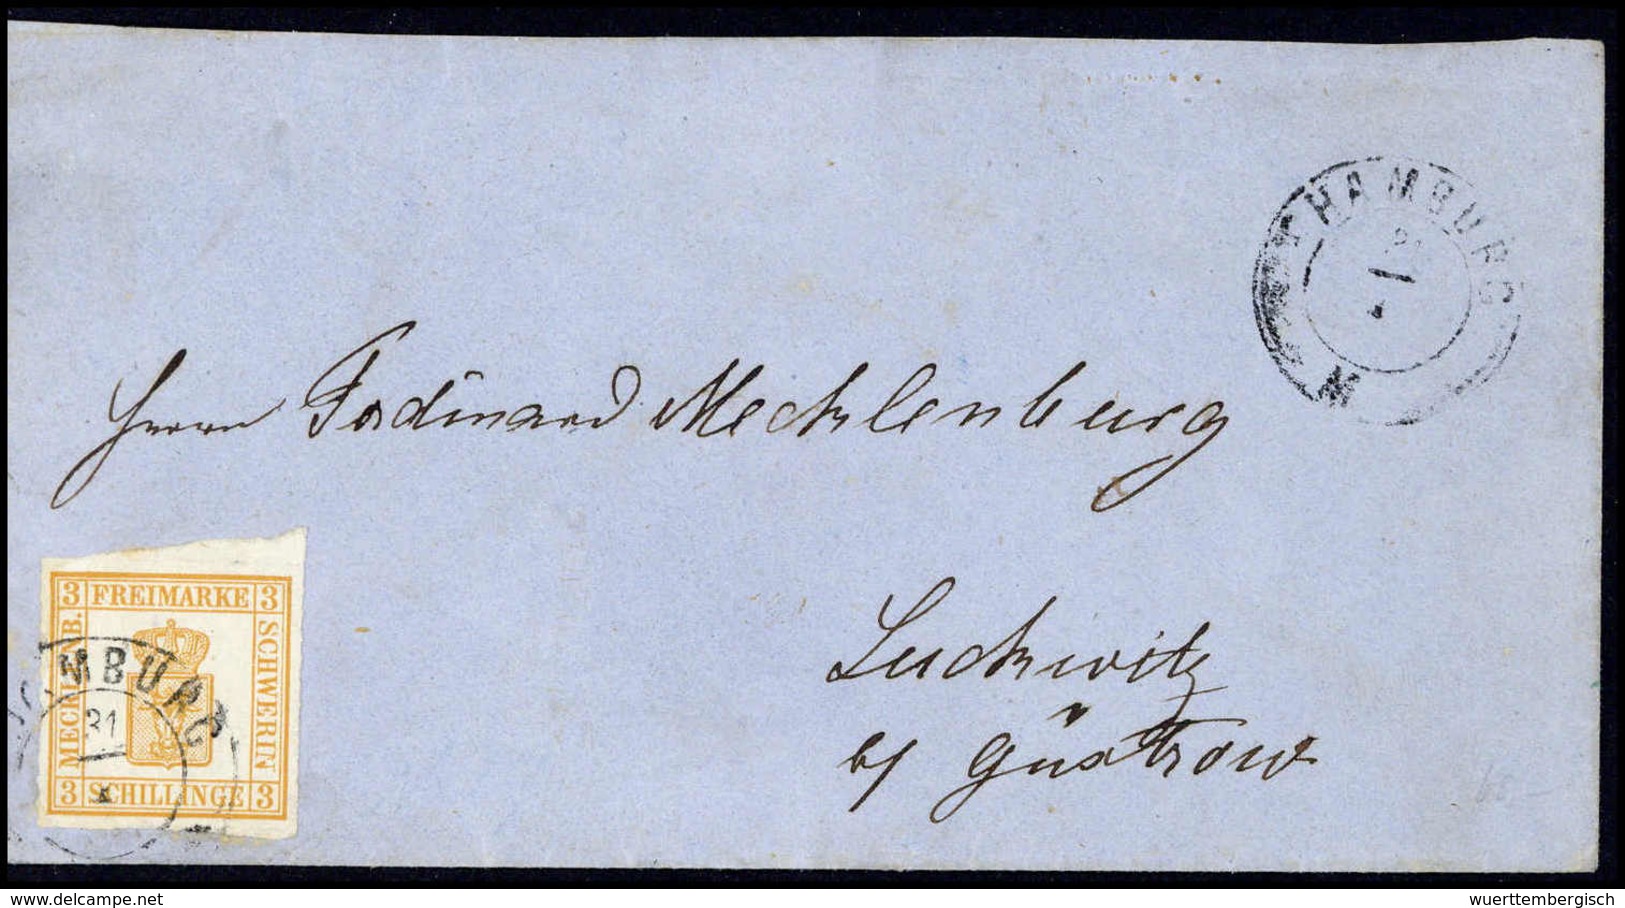 HAMBURG
31
M
Herrn Ferdinand Mecklenburg
3 FREIMARKE 3
MECKLENB.
SCHWERIN
3 SCHILLINGE 3
31
Luckwitz
b/ Güstrow
delcampe.net
wuerttembergisch